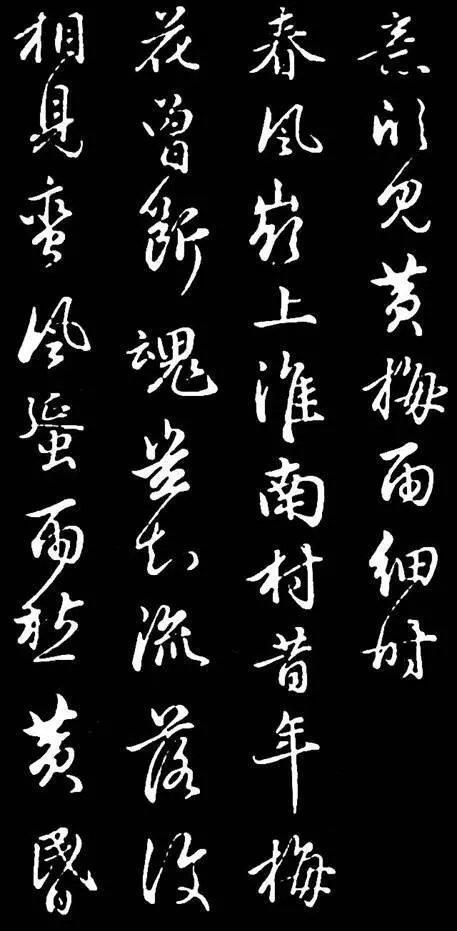 意見黃梅雨細時
春風嶺上淮南村昔年梅
花曾斷魂豈知流落復
相見蠻風蜑雨愁黃昏